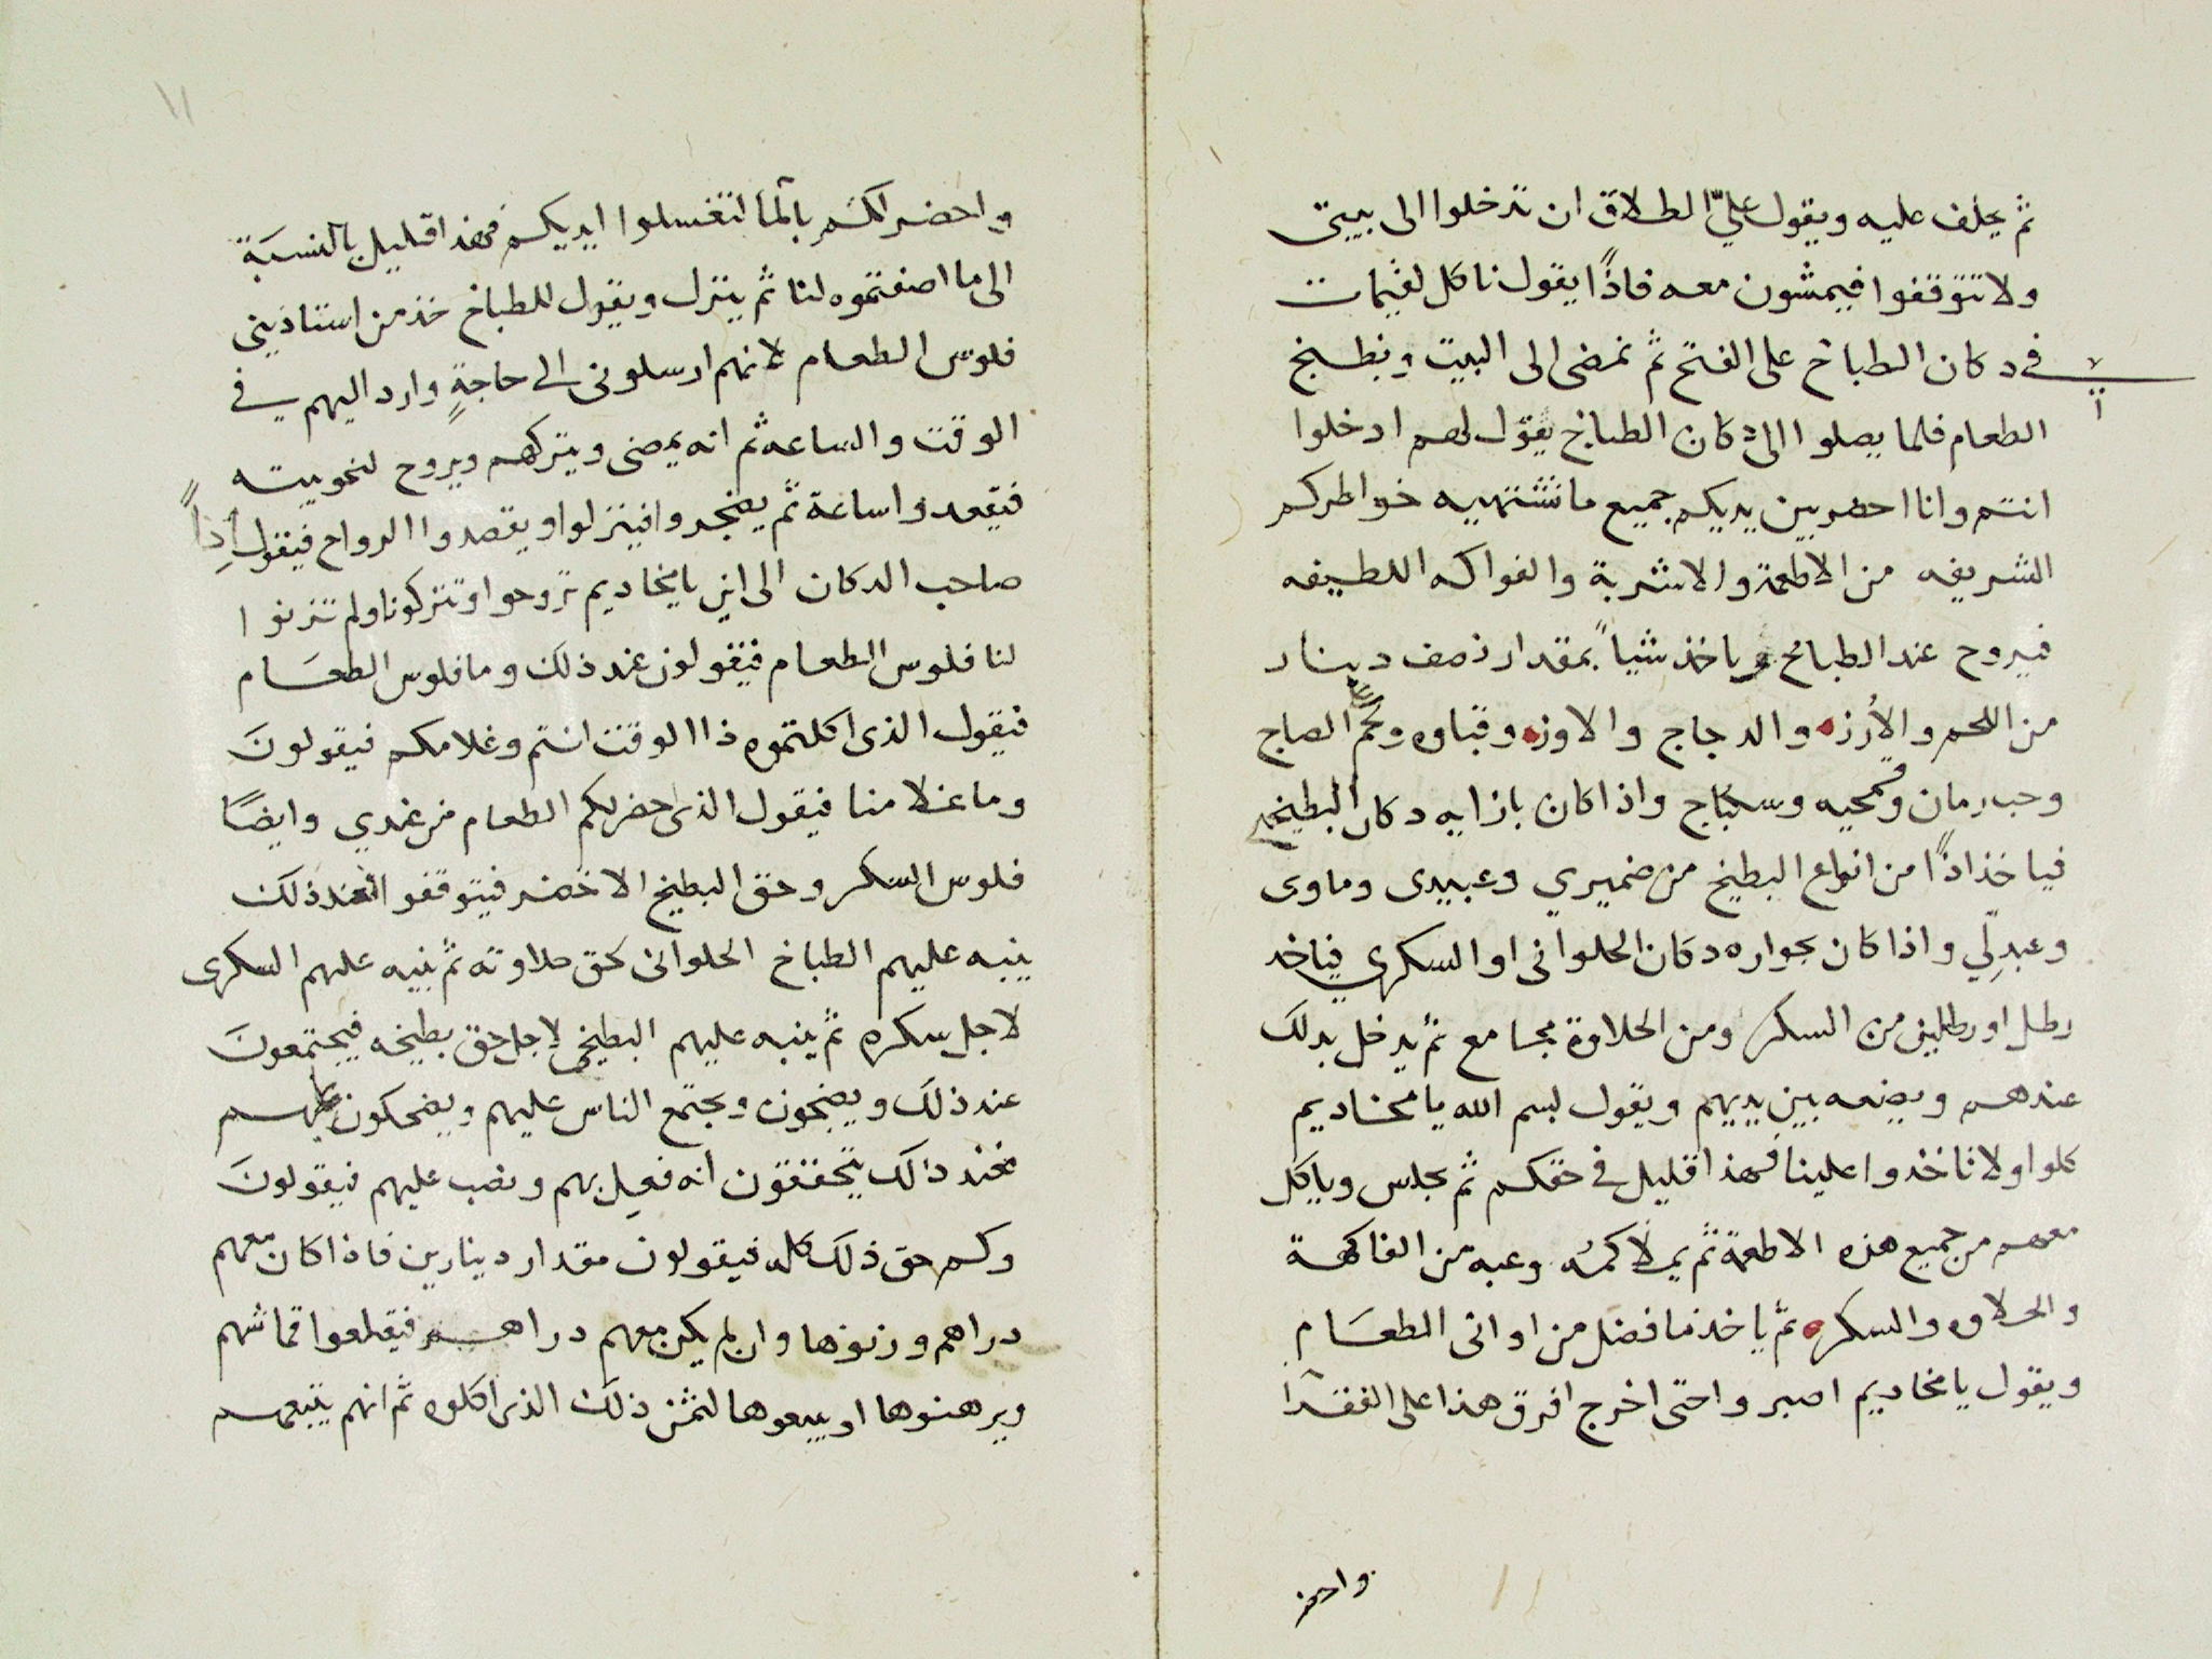 ثم يحلف عليه ويقول عليّ الطلاق ان تدخلوا الى بيتى
ولا تتوقفوا فيمشون معه فاذًا يقول ناكل لقيمات
فى دكان الطباخ على الفتح ثم نمضى الى البيت ونطبخ
الطعام فلما يصلوا الى دكان الطباخ يقول لهم ادخلوا
انتم وانا احضر بين يديكم جميع ما تشتهيه خواطركم
الشريفه من الاطعمة والاشربة والفواكه اللطيفه
فيروح عند الطباخ وياخذ شياً بمقدار نصف دينار
من اللحم والأرز والدجاج والاوز وقباوه ولحم الصاج
وحب رمان وقمحيه وسكباج واذا كان بازايه دكان البطيخى
فياخذ اذًا من انواع البطيخ من ضميري وعبيدى وماوى
وعبدلّي واذا كان بجواره دكان الحلوانى او السكرى فياخد
رطل او رطلين من السكر ومن الحلاوة مجامع ثم يدخل بدلك
عندهم ويضعه بين يديهم ويقول بسم الله يا مخاديم
كلوا ولا تاخدوا علينا فهذا قليل فى حقكم ثم يجلس وياكل
معهم من جميع هذه الاطعمة ثم يملأ كمه وعبه من الفاكهة
والحلاوه والسكر ثم ياخذ ما فضل من اوانى الطعَام
ويقول يا مخاديم اصبروا حتى اخرج افرق هذا على الفقرآ
واحضر
١١
واحضر لكم بالمآ لتغسلوا ايديكم فهذا قليل بالنسبَة
الى ما اضفتموه لنا ثم ينزل ويقول للطباخ خذ من استاذينى
فلوس الطعام لانهم ارسلونى الى حاجةٍ وارد اليهم فى
الوقت والساعه ثم انه يمضى ويتركهم ويروح لنحو بيته
فيقعدوا ساعة ثم يضجروا فينزلوا ويقصدوا الرواح فيقول اذاً
صاحب الدكان الى اين يا مخاديم تروحوا وتتركونا ولم تزنوا
لنا فلوس الطعام فيقولون عند ذلك وما فلوس الطعَام
فيقول الذى اكلتموه ذا الوقت انتم وغلامكم فيقولونَ
وما غلامنا فيقول الذى احضر لكم الطعام من عندي وايضًا
فلوس السكر وحق البطيخ الاخضر فيتوقفوا فعند ذلك
ينبه عليهم الطباخ الحلوانى بحق حلاوته ثم ينبه عليهم السكرى
لاجل سكره ثم ينبه عليهم البطيخى لاجل حق بطيخه فيجتمعونَ
عند ذلك ويضجون ويجتمع الناس عليهم ويضحكون عليهم
فعند ذالك يتحققون انه فعل بهم ونصب عليهم فيقولونَ
وكم حق ذلك كله فيقولون مقدار دينارين فاذا كان معهم
دراهم وزنوها وان لم يكن معهم دراهم فيقلعوا قماشهم
ويرهنوها او يبيعوها لثمن ذلك الذى اكلوه ثم انهم يتبعهم